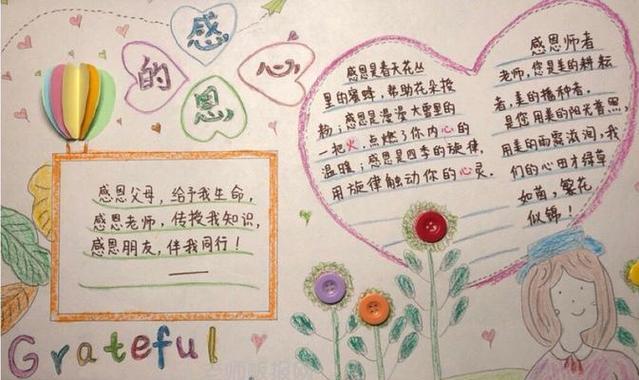 感
恩
的
心
感恩是春天花丛
里的蜜蜂，帮助花朵授
粉；感恩是漫漫大雪里的
一把火，点燃了你内心的
温暖；感恩是四季的旋律，
用旋律触动你的心灵。
感恩师者
老师，您是美的耕耘
者，美的播种者。
是您用美的阳光普照，
用美的雨露滋润，我
们的心田才绿草
如茵，繁花
似锦！
感恩父母，给予我生命，
感恩老师，传授我知识，
感恩朋友，伴我同行！
Grateful